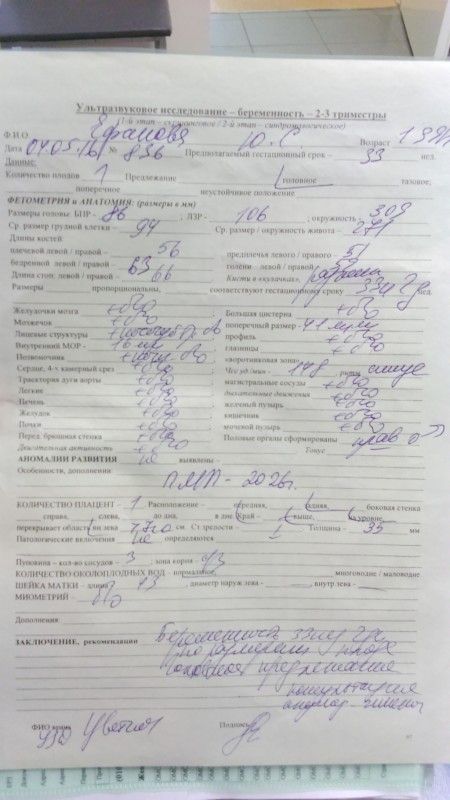 Ультразвуковое исследование – беременность – 2-3 триместры
(1-й этап – скрининговое / 2-й этап – синдромологическое)
Ф.И.О. Ефанова Ю.С Возраст
Дата 04.05.16 № 836 Предполагаемый гестационный срок – 33 нед.
Данные:
Количество плодов 1 Предлежание головное тазовое;
поперечное неустойчивое положение
ФЕТОМЕТРИЯ и АНАТОМИЯ: (размеры в мм)
Размеры головы: БПР - 86 , ЛЗР - 106 , окружность - 309
Ср. размер грудной клетки - 94 Ср. размер / окружность живота - 271
Длины костей:
плечевой левой / правой - 56 предплечья левого / правого - 51
бедренной левой / правой - 63 голени левой / правой -
Длина стоп: левой / правой - 66 Кисти в «кулачках»,
Размеры пропорциональны, соответствуют гестационному сроку 33н 2д нед.
Желудочки мозга + б/о Большая цистерна + б/о
Мозжечок + б/о поперечный размер - 41 мм
Лицевые структуры + профиль + б/о
Внутренний МОР - 16 мм глазницы + б/о
Позвоночник + «воротниковая зона»
Сердце, 4-х камерный срез + б/о Чсс уд/мин - 148 , ритм
Траектория дуги аорты + б/о магистральные сосуды + б/о
Легкие + б/о дыхательные движения + б/о
Печень + б/о желчный пузырь + б/о
Желудок + б/о кишечник + б/о
Почки + б/о мочевой пузырь + б/о
Перед. брюшная стенка + б/о Половые органы сформированы
Двигательная активность + б/о Тонус
АНОМАЛИИ РАЗВИТИЯ не выявлены –
Особенности, дополнения:
ПМП - 2026г.
КОЛИЧЕСТВО ПЛАЦЕНТ - 1 Расположение – боковая стенка
справа, слева, до дна, в дне. Край – выше, на уровне,
перекрывает область вн зева см Ст зрелости – I Толщина – 35 мм
Патологические включения не определяются
Пуповина – кол-во сосудов – 3 зона корня -
КОЛИЧЕСТВО ОКОЛОПЛОДНЫХ ВОД - нормальное многоводие / маловодие
ШЕЙКА МАТКИ – длина , диаметр наруж зева - , внутр зева -
МИОМЕТРИЙ - б/о
Дополнения
ЗАКЛЮЧЕНИЕ, рекомендации Беременность 33н 2д
по размерам плода
головное предлежание
консультация
ФИО врача Подпись
УЗД